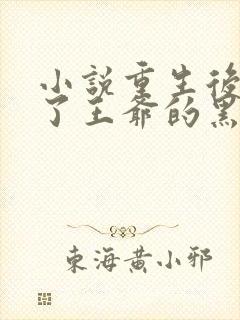 小說重生後
了王爺的黑
東海黃小邪